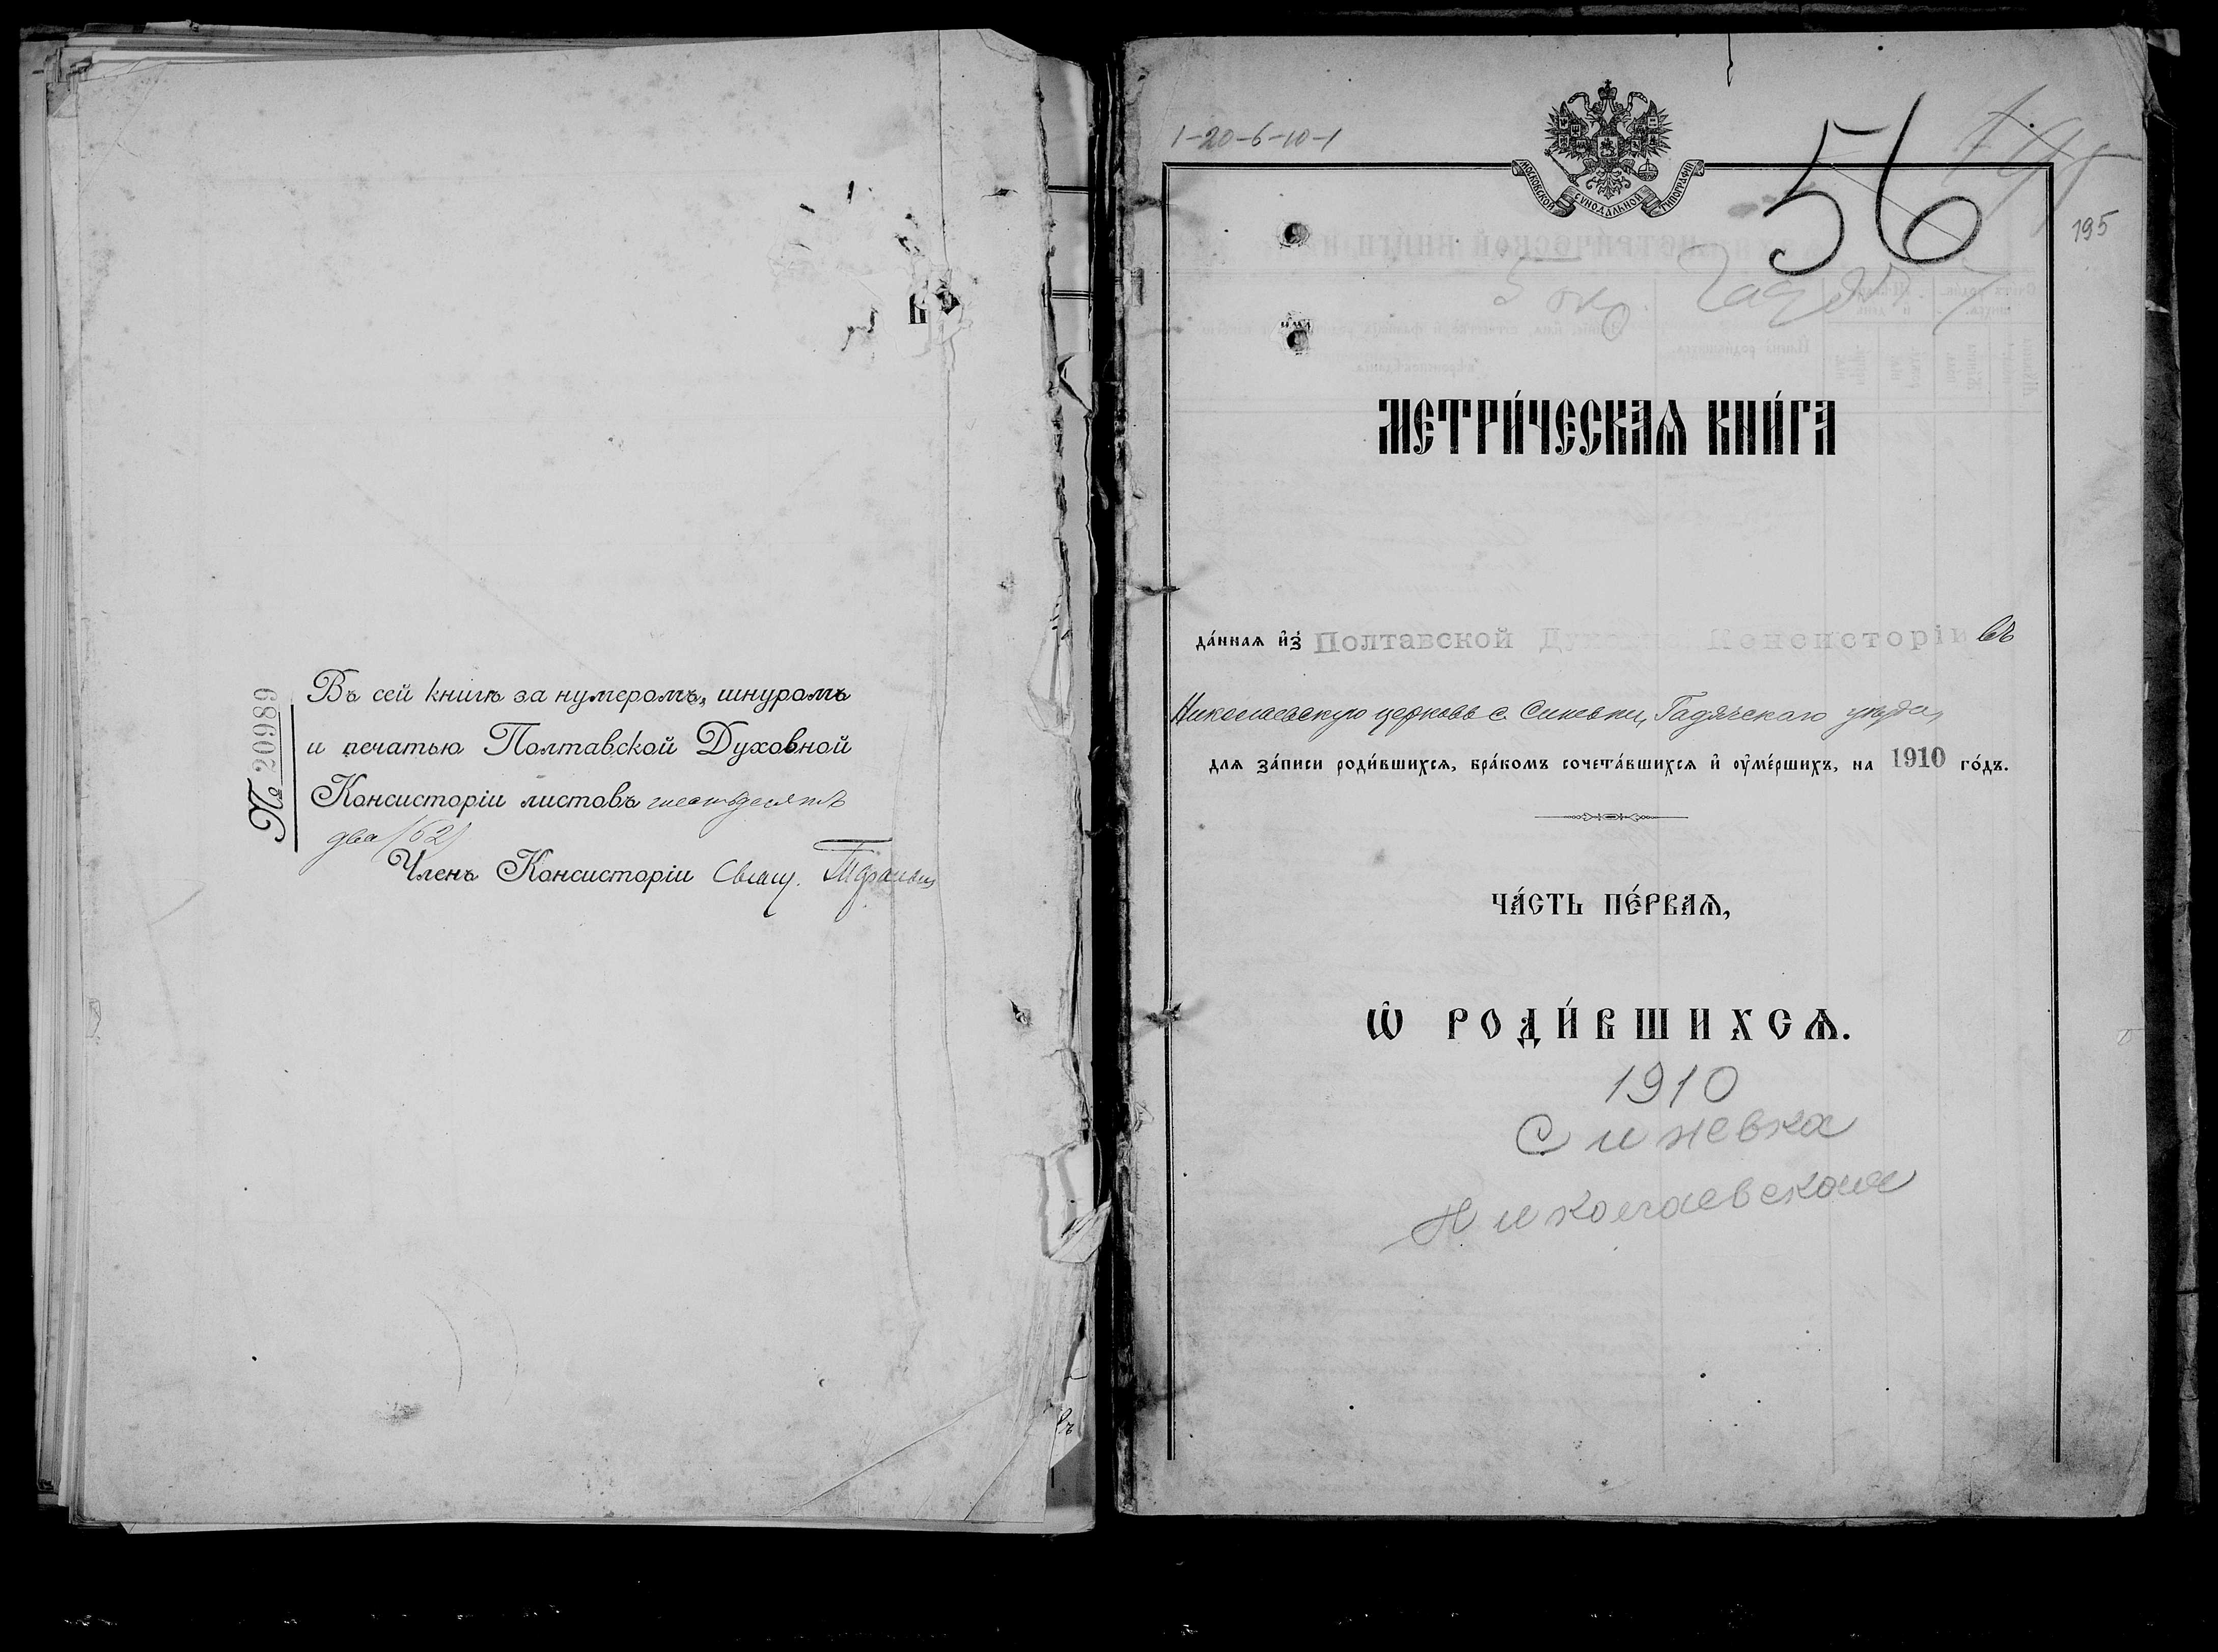 № 20989
Въ сей книгѣ за нумеромъ, шнуромъ
и печатью Полтавской Духовной
Консисторіи листовъ шестьдесятъ
два (62)
Членъ Консисторіи Свящ.
1-20-6-10-1
МОСКОВСКОЙ СУНОДАЛЬНОЙ ТИПОГРАФІИ
56
195
5 окр.
МЕТРИ́ЧЕСКАѦ КНИ́ГА
да́ннаѧ и҆з̾ Полтавской Консисторіи въ
Николаевскую церковь с. Синевки, Гадячскаго уѣзда,
для за́писи роди́вшихсѧ, бра́комъ сочета́вшихсѧ и҆ ᲂу҆ме́ршихъ, на 1910 го́дъ.
ЧА́СТЬ ПЕ́РВАѦ,
Ѡ҆ РОДИ́ВШИХСѦ.
1910
Синевка
Николаевская